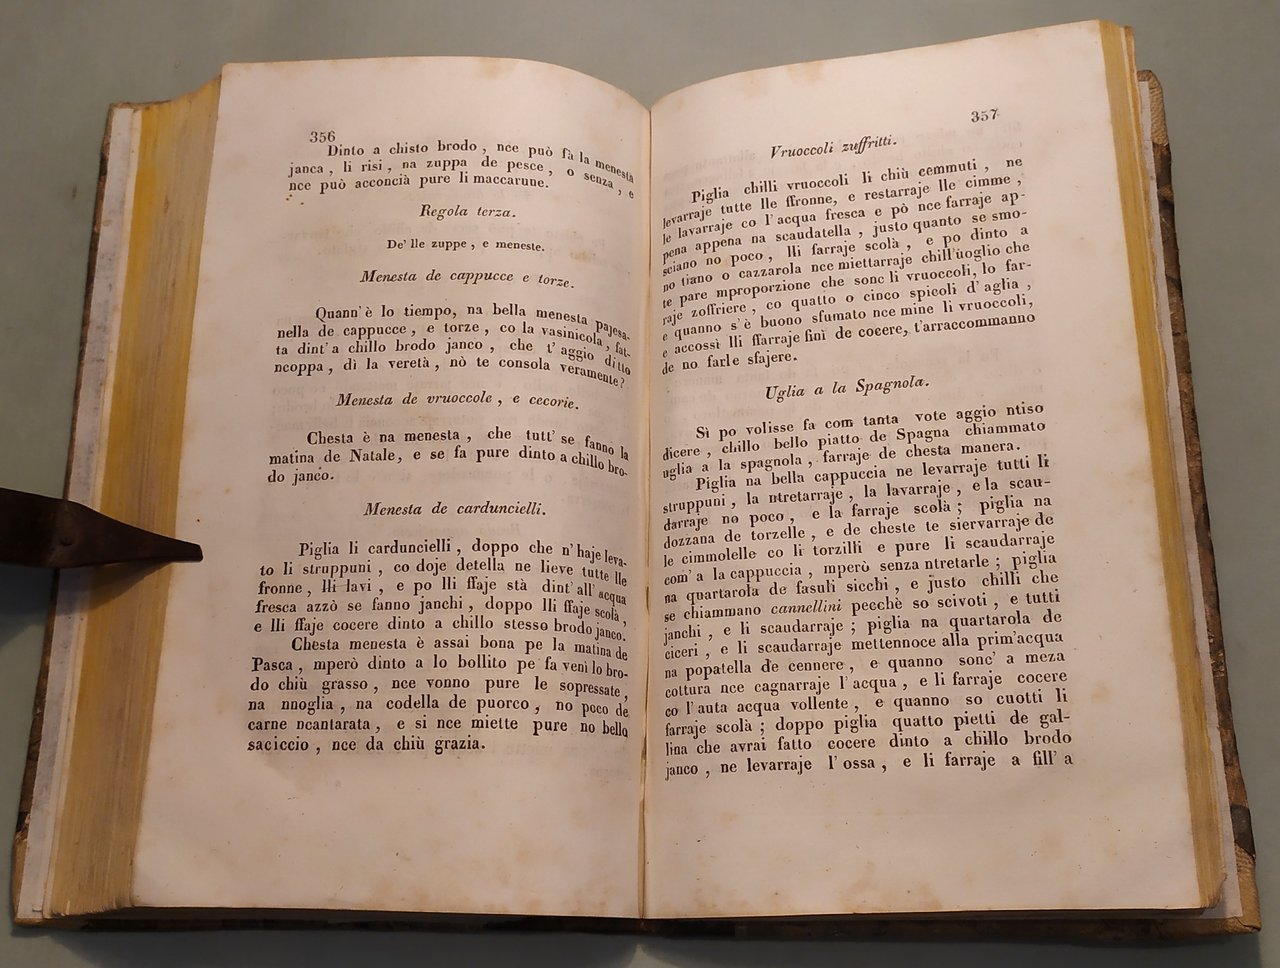 356
Dinto a chisto brodo , nce può fà la menesta
janca , li risi , na zuppa de pesce , o senza , e
nce può acconcià pure li maccarune.
Regola terza.
De' lle zuppe , e meneste.
Menesta de cappucce e torze.
Quann' è lo tiempo, na bella menesta pajesa-
nella de cappucce , e torze , co la vasinicola , fat-
ta dint' a chillo brodo janco , che t' aggio ditto
ncoppa , di la veretà , nò te consola veramente ?
Menesta de vruoccole , e cecorie.
Chesta è na menesta , che tutt' se fanno la
matina de Natale, e se fa pure dinto a chillo bro-
do janco.
Menesta de carduncielli.
Piglia li carduncielli , doppo che n' haje leva-
to li struppuni , co doje detella ne lieve tutte lle
fronne , lli lavi , e po lli ffaje stà dint' all' acqua
fresca azzò se fanno janchi , doppo lli ffaje scolà ,
e lli ffaje cocere dinto a chillo stesso brodo janco.
Chesta menesta è assai bona pe la matina de
Pasca , mperò dinto a lo bollito pe fa venì lo bro-
do chiù grasso , nce vonno pure le sopressate ,
na nnoglia , na codella de puorco , no poco de
carne ncantarata , e si nce miette pure no bello
saciccio , nce da chiù grazia.
357
Vruoccoli zuffritti.
Piglia chilli vruoccoli li chiù cemmuti , ne
levarraje tutte lle ffronne, e restarraje lle cimme ,
le lavarraje co l' acqua fresca e pò nce farraje ap-
pena appena na scaudatella , justo quanto se smo-
sciano no poco , lli farraje scolà , e po dinto a
no tiano o cazzarola nce miettarraje chill' uoglio che
te pare mproporzione che sonc li vruoccoli, lo far-
raje zoffriere , co quatto o cinco spicoli d' aglia ,
e quanno s' è buono sfumato nce mine li vruoccoli,
e accossì lli ffarraje finì de cocere, t'arraccommanno
de no farle sfajere.
Uglia a la Spagnola.
Sì po volisse fa com tanta vote aggio ntiso
dicere , chillo bello piatto de Spagna chiammato
uglia a la spagnola , farraje de chesta manera.
Piglia na bella cappuccia ne levarraje tutti li
struppuni , la ntretarraje , la lavarraje , e la scau-
darraje no poco , e la farraje scolà ; piglia na
dozzana de torzelle , e de cheste te siervarraje de
le cimmolelle co li torzilli e pure li scaudarraje
com' a la cappuccia , mperò senza ntretarle ; piglia
na quartarola de fasuli sicchi , e justo chilli che
se chiammano cannellini pecchè so scivoti , e tutti
janchi , e li scaudarraje ; piglia na quartarola de
ciceri , e li scaudarraje mettennoce alla prim'acqua
na popatella de cennere , e quanno sonc' a meza
cottura nce cagnarraje l' acqua , e li farraje cocere
co l' auta acqua vollente , e quanno so cuotti li
farraje scolà ; doppo piglia quatto pietti de gal-
lina che avrai fatto cocere dinto a chillo brodo
janco , ne levarraje l' ossa , e li farraje a fill' a